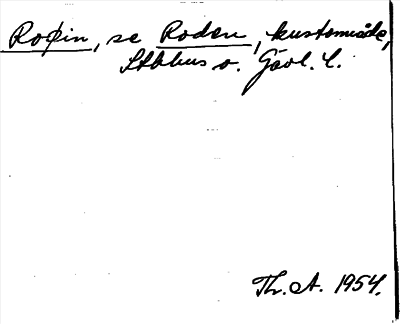 Roþin, se Roden, kustområde,
Stblhus o. Gävl. l.
Th. A. 1954.